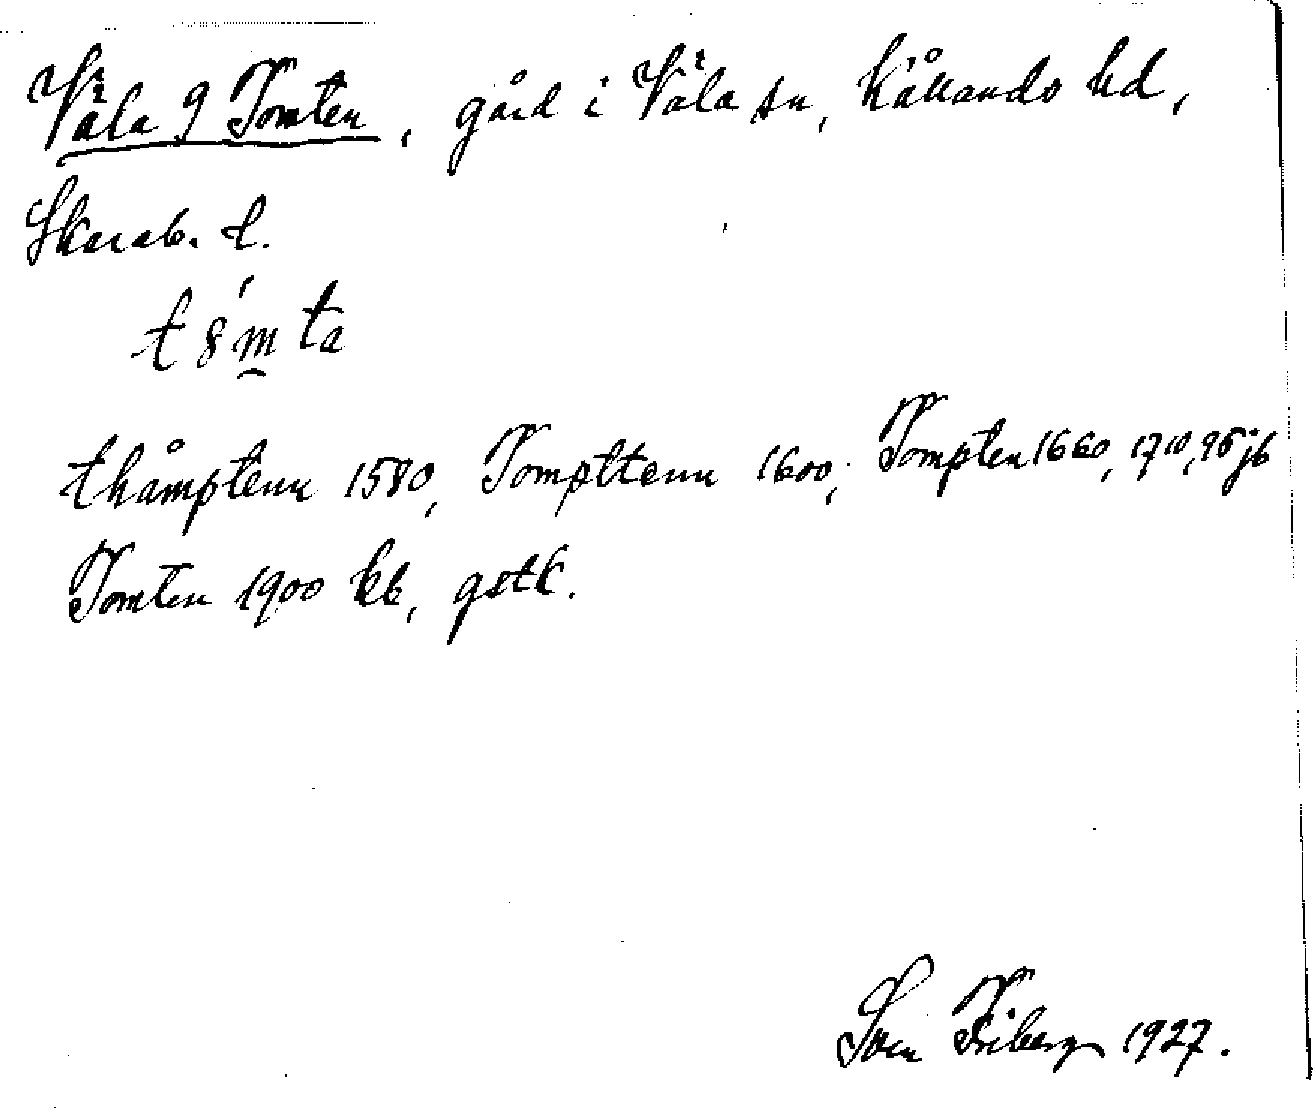 Väla 9 Tomten, gård i Väla sn, Kållands hd,
Skarab. l.
t8́m̯ta
thåmptenn 1580, Tompttenn 1600, Tompten 1660, 1710, 95 jb
Tomten 1900 kb, gstk.
Sven Friberg 1927.